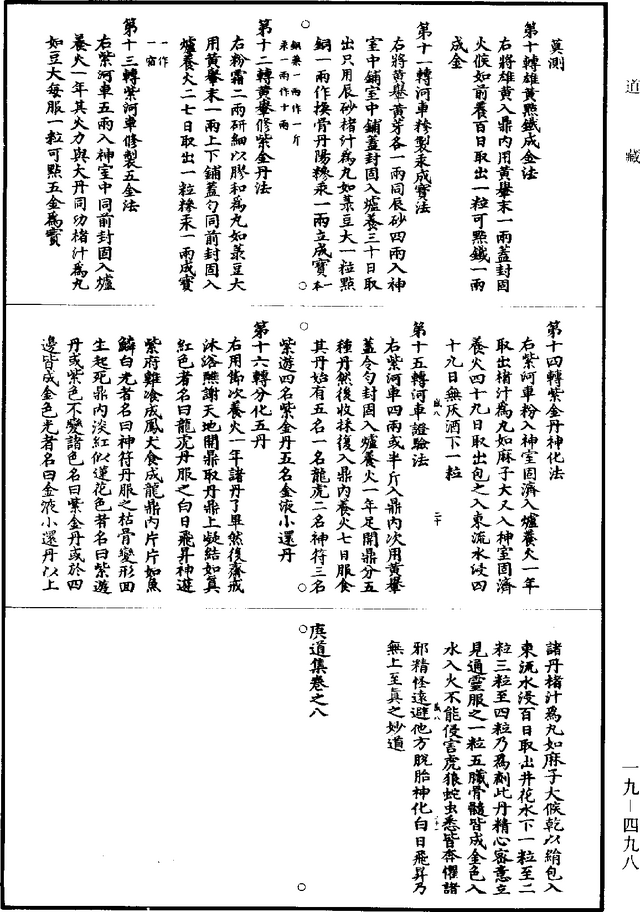 道藏
莫測
第十轉雄黃點鐵成金法
右將雄黃入鼎內用黃轝末一兩蓋封固
火候如前養百日取出一粒可點鐵一兩
成金
第十一轉河車糝製汞成寶法
右將黃轝黃芽各一兩同辰砂四兩入神
室中鋪室中鋪蓋封固入爐養三十日取
出只用辰砂楮汁為丸如菉豆大一粒點
銅一兩作換骨丹陽糝汞一兩立成寶一本
銅汞一兩作一斤
汞一兩作十兩
第十二轉黃轝修紫金丹法
右粉霜二兩研細以膠和為丸如菉豆大
用黃轝末一兩上下鋪蓋勻同前封固入
爐養火二七日取出一粒糝汞一兩成寶
一作
一宿
第十三轉紫河車修製五金法
右紫河車五兩入神室中同前封固入爐
養火一年其火力與大丹同功楮汁為丸
如豆大每服一粒可點五金為寶
第十四轉紫金丹神化法
右紫河車粉入神室固濟入爐養火一年
取出楮汁為丸如麻子大又入神室固濟
養火四十九日取出包之入東流水浸四
十九日無灰酒下一粒
第十五轉河車證驗法
右紫河車四兩或半斤入鼎內次用黃轝
蓋令勻封固入爐養火一年足開鼎分五
種丹然後收抹復入鼎內養火七日服食
其丹始有五名一名龍虎二名神符三名
紫遊四名紫金丹五名金液小還丹
第十六轉分化五丹
右用節次養火一年諸丹了畢然後齋戒
沐浴醮謝天地開鼎取丹鼎上凝結如真
紅色者名曰龍虎丹服之白日飛昇神遊
紫府雞飡成鳳犬食成龍鼎內片片如魚
鱗白光者名曰神符丹服之枯骨變形回
生起死鼎內淡紅似蓮花色者名曰紫遊
丹或紫色不變諸色名曰紫金丹或於四
邊皆成金色光者名曰金液小還丹以上
諸丹楮汁為丸如麻子大候乾以絹包入
東流水浸百日取出井花水下一粒至二
粒三粒至四粒乃為劑此丹精心審意立
見通靈服之一粒五臟骨髓皆成金色入
水入火不能侵害虎狼蛇虫悉皆奔懼諸
邪精怪遠避他方脫胎神化白日飛昇乃
無上至真之妙道
庚道集卷之八
一九—四九八